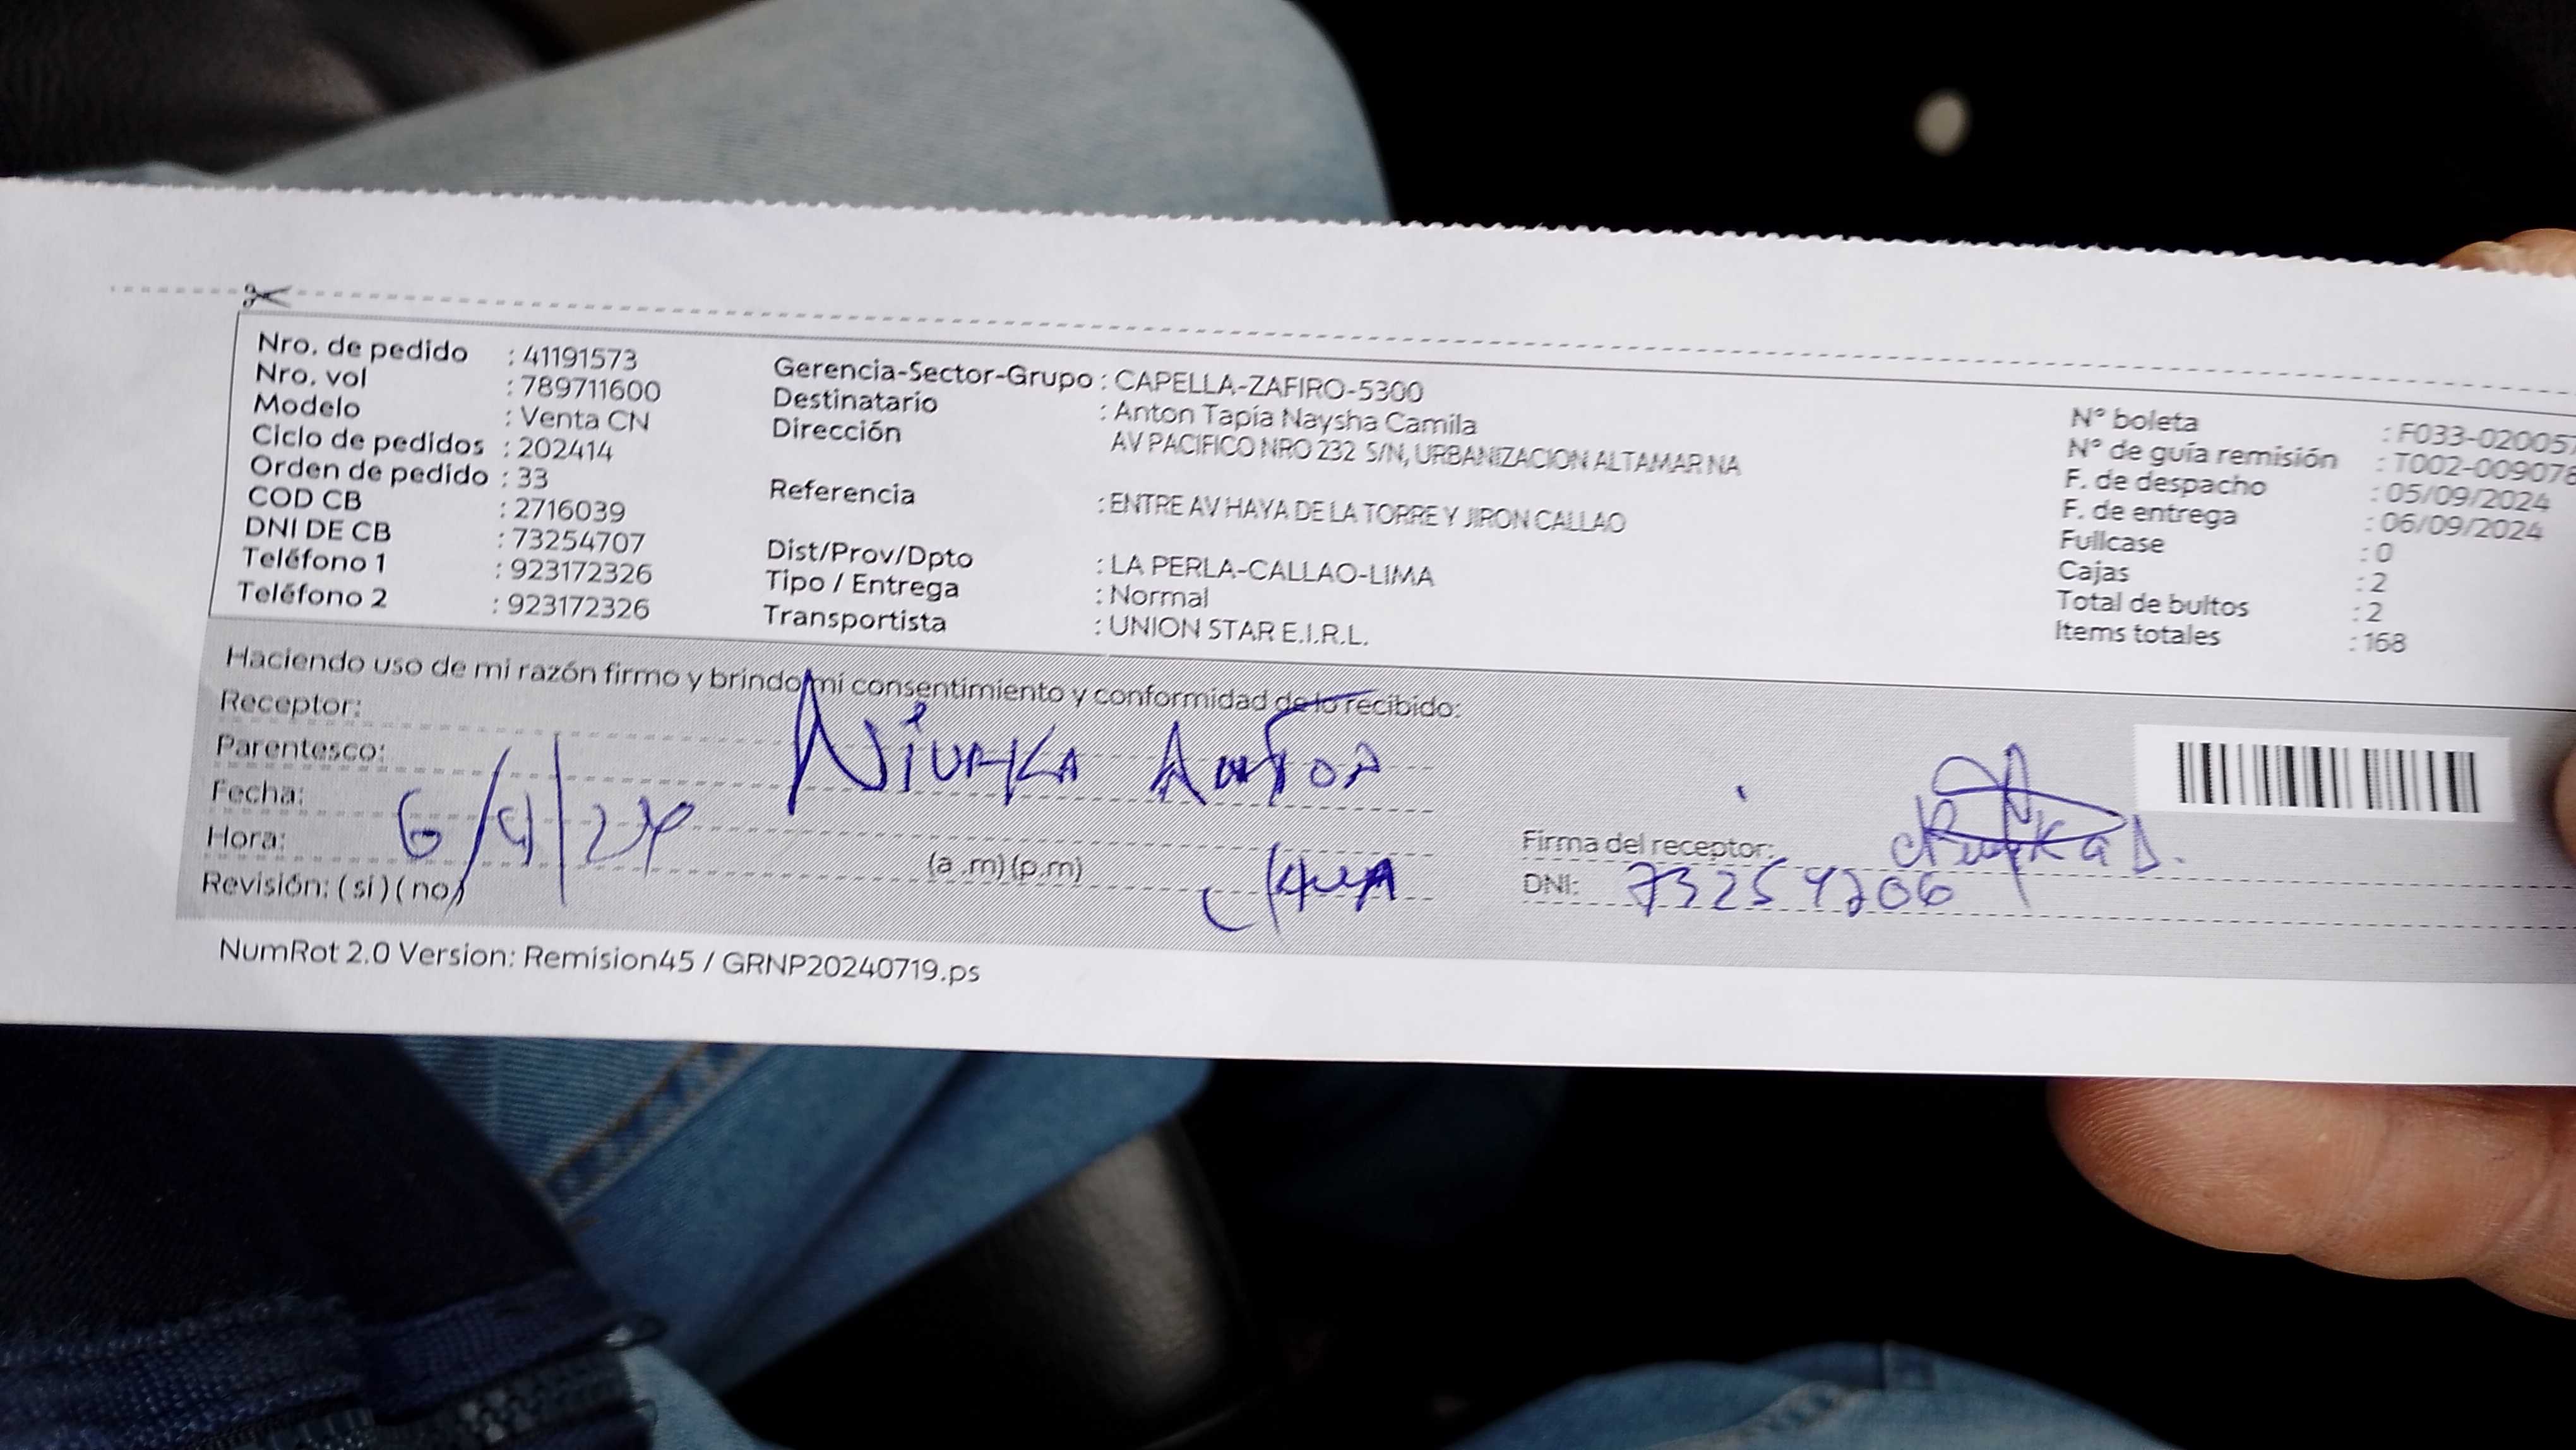 Nro. de pedido : 41191573
Nro. vol : 789711600
Modelo : Venta CN
Ciclo de pedidos : 202414
Orden de pedido : 33
COD CB : 2716039
DNI DE CB : 73254707
Teléfono 1 : 923172326
Teléfono 2 : 923172326
Gerencia-Sector-Grupo : CAPELLA-ZAFIRO-5300
Destinatario : Anton Tapia Naysha Camila
Dirección AV PACIFICO NRO 232 S/N, URBANIZACION ALTAMAR NA
Referencia : ENTRE AV HAYA DE LA TORRE Y JIRON CALLAO
Dist/Prov/Dpto : LA PERLA-CALLAO-LIMA
Tipo / Entrega : Normal
Transportista : UNION STAR E.I.R.L.
N° boleta : F033-020057
N° de guía remisión : T002-009078
F. de despacho : 05/09/2024
F. de entrega : 06/09/2024
Fullcase : 0
Cajas : 2
Total de bultos : 2
Items totales : 168
Haciendo uso de mi razón firmo y brindo mi consentimiento y conformidad de lo recibido:
Receptor:
Parentesco: Niurka Anton
Fecha: 6/9/24
Hora: (a .m) (p.m)
Revisión: ( si ) ( no )
Firma del receptor:
DNI: 73254706
NumRot 2.0 Version: Remision45 / GRNP20240719.ps